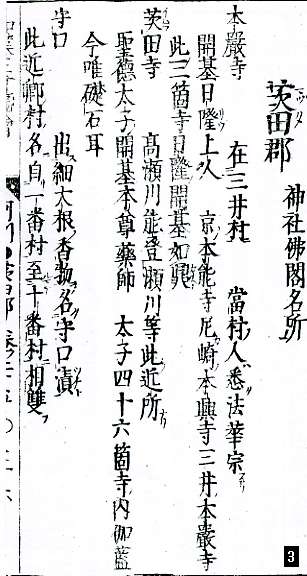 茨田郡 神社佛閣名所
本嚴寺 在三井村 當村人悉法華宗
開基日隆上人 京本能寺尼崎本興寺三井本嚴寺
此三箇寺日隆開基如
茨田寺 髙瀬川能登瀬川等此近所
聖德太子開基本尊藥師 太子四十六箇寺内伽藍
今唯礎石耳
守口 出細大根香物名守口漬
此近鄉村名自一番村至十番村相雙
3